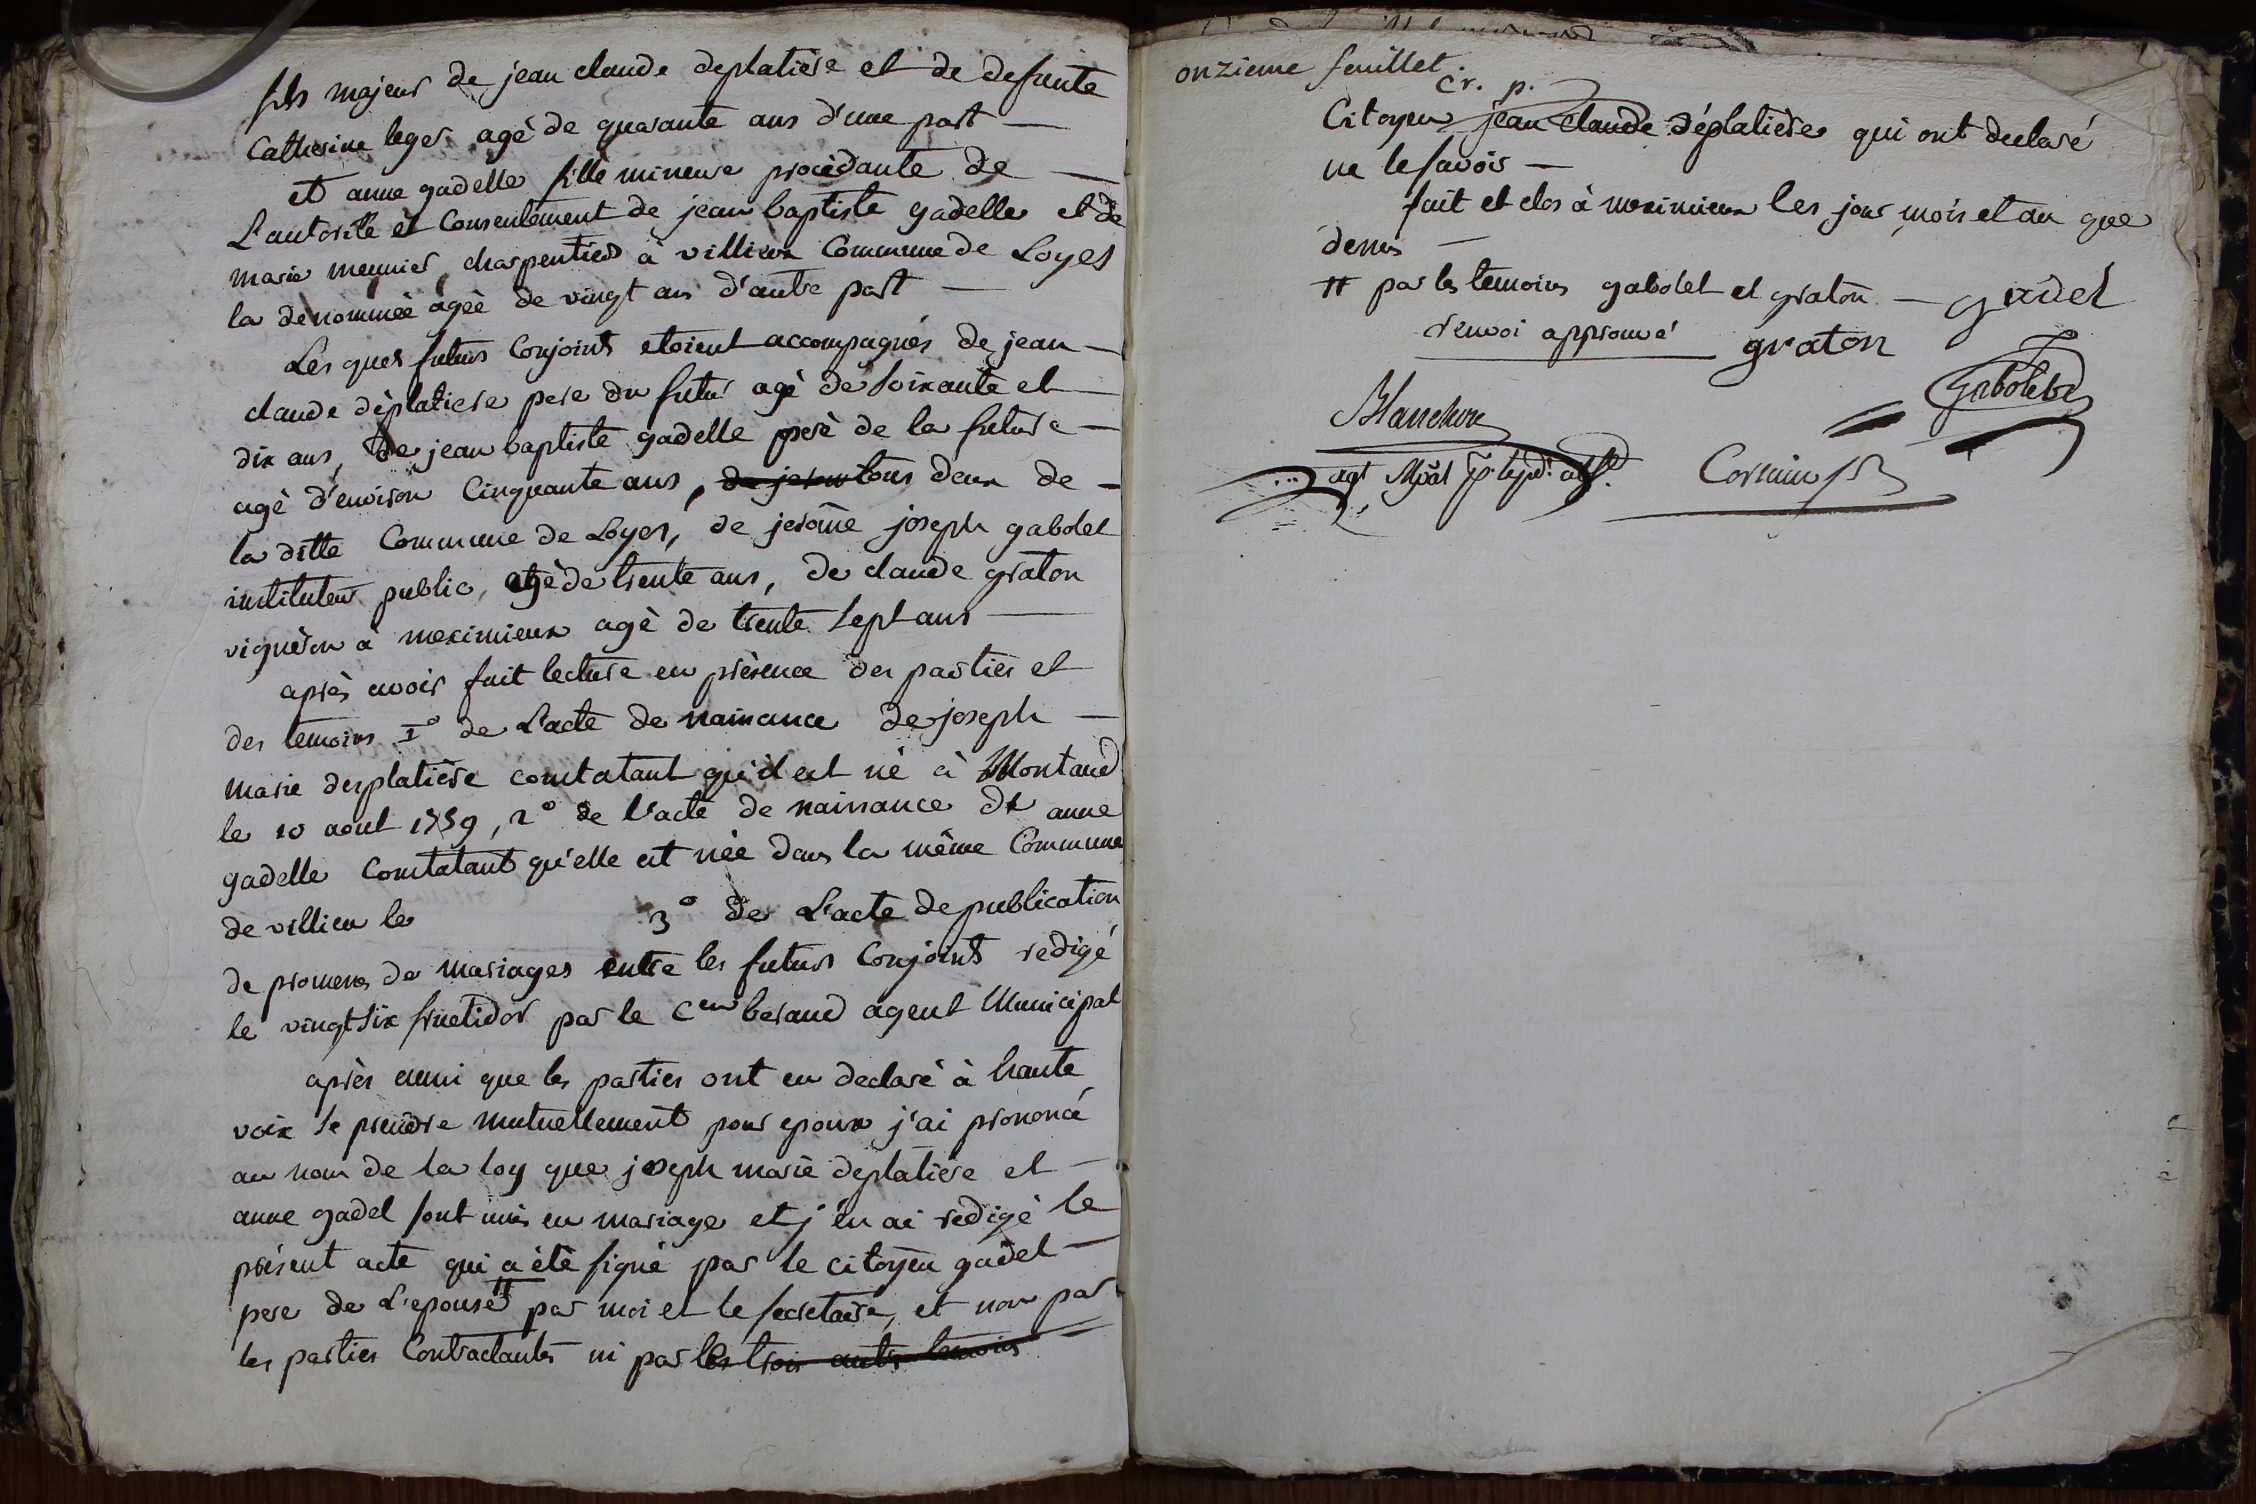 fils majeur de jean claude deplatière et de defunte
Catherine leger agé de quarante ans d'une part —
et anne gadelle fille mineure procèdante de —
L'autorité et Consentement de jean baptiste gadelle et de
marie meunier, charpentier à villieux Commune de Loyes
la dénommée agée de vingt ans d'autre part —
Les quels futurs Conjoints etoient accompagnés de jean —
claude déplatiere pere du futur agé de soixante et —
dix ans, de jean baptiste gadelle peré de la future —
agé d'environ Cinquante ans, de jerom tous deux de —
la ditte Commune de Loyes, de jerôme joseph gabolet
instituteur public, agé de trente ans, de claude graton
vigneron à meximieux agé de trente sept ans —
après avoir fait lecture en présence des parties et
des temoins I° de L'acte de naissance de joseph —
marie desplatière constatant qu'il est né à Montaud
le 10 aout 1759, 2° de l'acte de naissance de anne
gadelle Constatant qu'elle est née dans la même Commune
de villieu le 3° de L'acte de publication
de promesses de mariages entre les futurs Conjoints redigé
le vingt six fructidor par le Cen beraud agent Municipal
après aussi que les parties ont eu declaré à haute
voix se prendre mutuellement pour epoux j'ai prononcé
au nom de la loy que joseph marie deplatière et —
anne gadel sont unis en mariage et j'en ai redigé le
présent acte qui a été signé par le citoyen gadel —
pere de L'epouse # par moi et le secretaire, et non par
les parties Contractantes ni par les trois autres temoins
onzieme feuillet.
Cr. p.
Citoyen jean claude déplatière qui ont declaré
ne le savoir —
fait et clos à meximieux les jour, mois et an que
dessus —
# par les temoins gabolet et graton — gadel
renvoi approuvé graton
Gabolet
Blanchon
agt Mpal